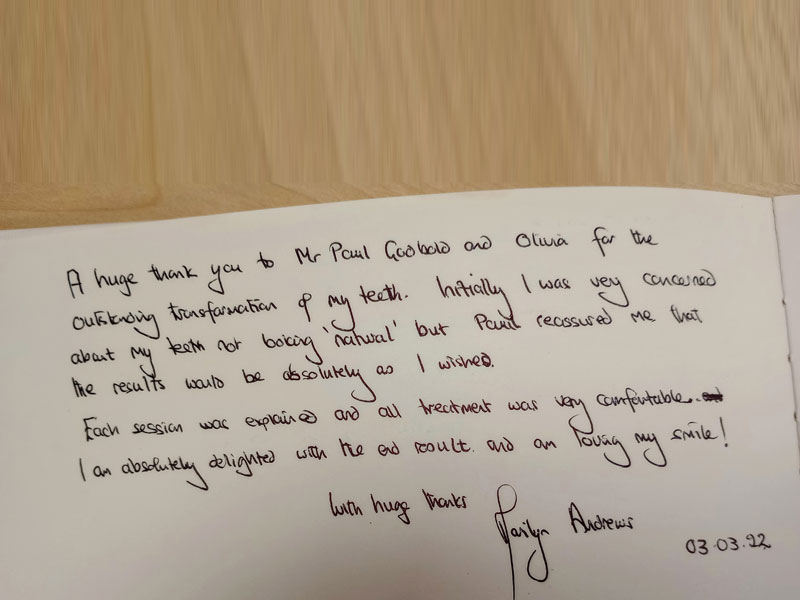 A huge thank you to Mr Paul Godbold and Olivia for the
outstanding transformation of my teeth. Initially I was very concerned
about my teeth not looking 'natural' but Paul reassured me that
the results would be absolutely as I wished.
Each session was explained and all treatment was very comfortable.
I am absolutely delighted with the end result. and am loving my smile!
With huge thanks Marilyn Andrews
03.03.22